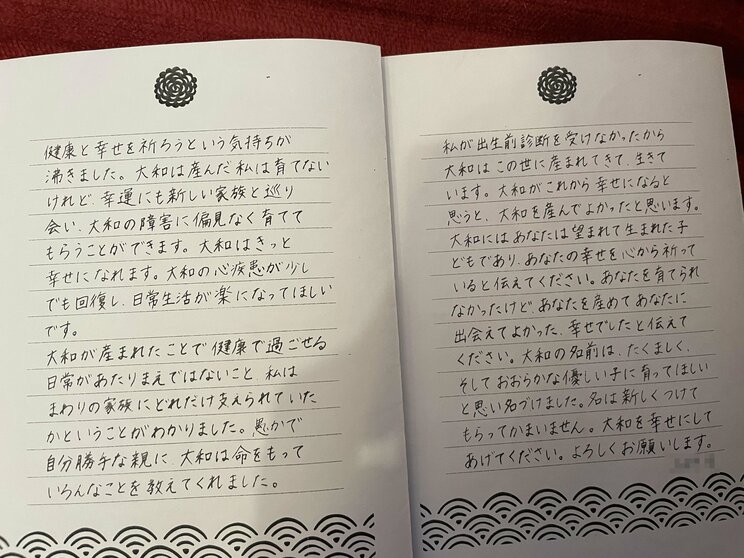 健康と幸せを祈ろうという気持ちが
沸きました。大和は産んだ私は育てない
けれど、幸運にも新しい家族と巡り
会い、大和の障害に偏見なく育てて
もらうことができます。大和はきっと
幸せになれます。大和の心疾患が少し
でも回復し、日常生活が楽になってほしい
です。
大和が産まれたことで健康で過ごせる
日常があたりまえではないこと、私は
まわりの家族にどれだけ支えられていた
かということがわかりました。愚かで
自分勝手な親に、大和は命をもって
いろんなことを教えてくれました。
私が出生前診断を受けなかったから
大和はこの世に産まれてきて、生きて
います。大和がこれから幸せになると
思うと、大和を産んでよかったと思います。
大和にはあなたは望まれて生まれた子
どもであり、あなたの幸せを心から祈って
いると伝えてください。あなたを育てられ
なかったけど、あなたを産めてあなたに
出会えてよかった、幸せでしたと伝えて
ください。大和の名前は、たくましく、
そしておおらかな優しい子に育ってほしい
と思い名づけました。名は新しくつけて
もらってかまいません。大和を幸せにして
あげてください。よろしくお願いします。